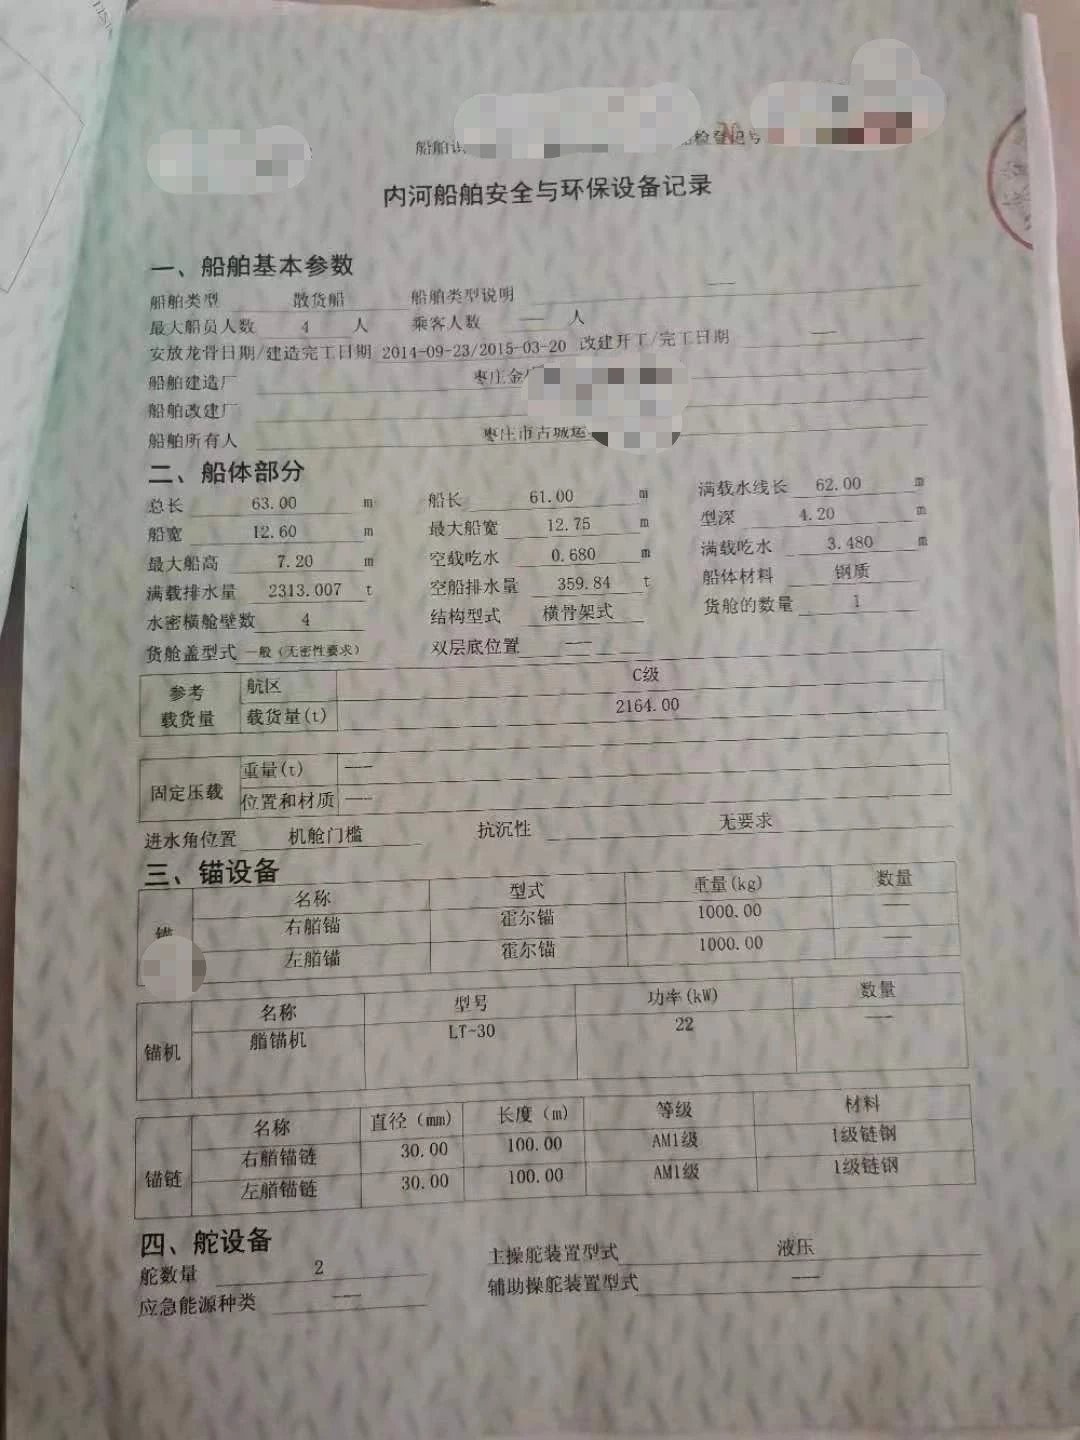 船舶识 船检登记号
内河船舶安全与环保设备记录
一、船舶基本参数
船舶类型 散货船 船舶类型说明 ——
最大船员人数 4 人 乘客人数 —— 人
安放龙骨日期/建造完工日期 2014-09-23/2015-03-20 改建开工/完工日期 ——
船舶建造厂 枣庄金
船舶改建厂
船舶所有人 枣庄市古城运
二、船体部分
总长 63.00 m 船长 61.00 m 满载水线长 62.00 m
船宽 12.60 m 最大船宽 12.75 m 型深 4.20 m
最大船高 7.20 m 空载吃水 0.680 m 满载吃水 3.480 m
满载排水量 2313.007 t 空船排水量 359.84 t 船体材料 钢质
水密横舱壁数 4 结构型式 横骨架式 货舱的数量 1
货舱盖型式 一般（无密性要求） 双层底位置 ——
参考载货量 航区 C级
载货量(t) 2164.00
固定压载 重量(t) ——
位置和材质 ——
进水角位置 机舱门槛 抗沉性 无要求
三、锚设备
锚 名称 型式 重量(kg) 数量
右艏锚 霍尔锚 1000.00 ——
左艏锚 霍尔锚 1000.00 ——
锚机 名称 型号 功率(kW) 数量
艏锚机 LT-30 22 ——
锚链 名称 直径（mm） 长度（m） 等级 材料
右艏锚链 30.00 100.00 AM1级 1级链钢
左艏锚链 30.00 100.00 AM1级 1级链钢
四、舵设备
舵数量 2 主操舵装置型式 液压
应急能源种类 —— 辅助操舵装置型式 ——